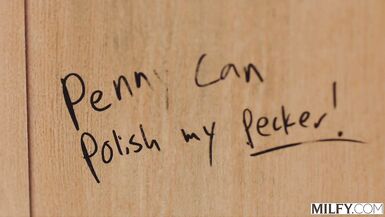 Penny Can
Polish my Pecker!
MILFY.COM